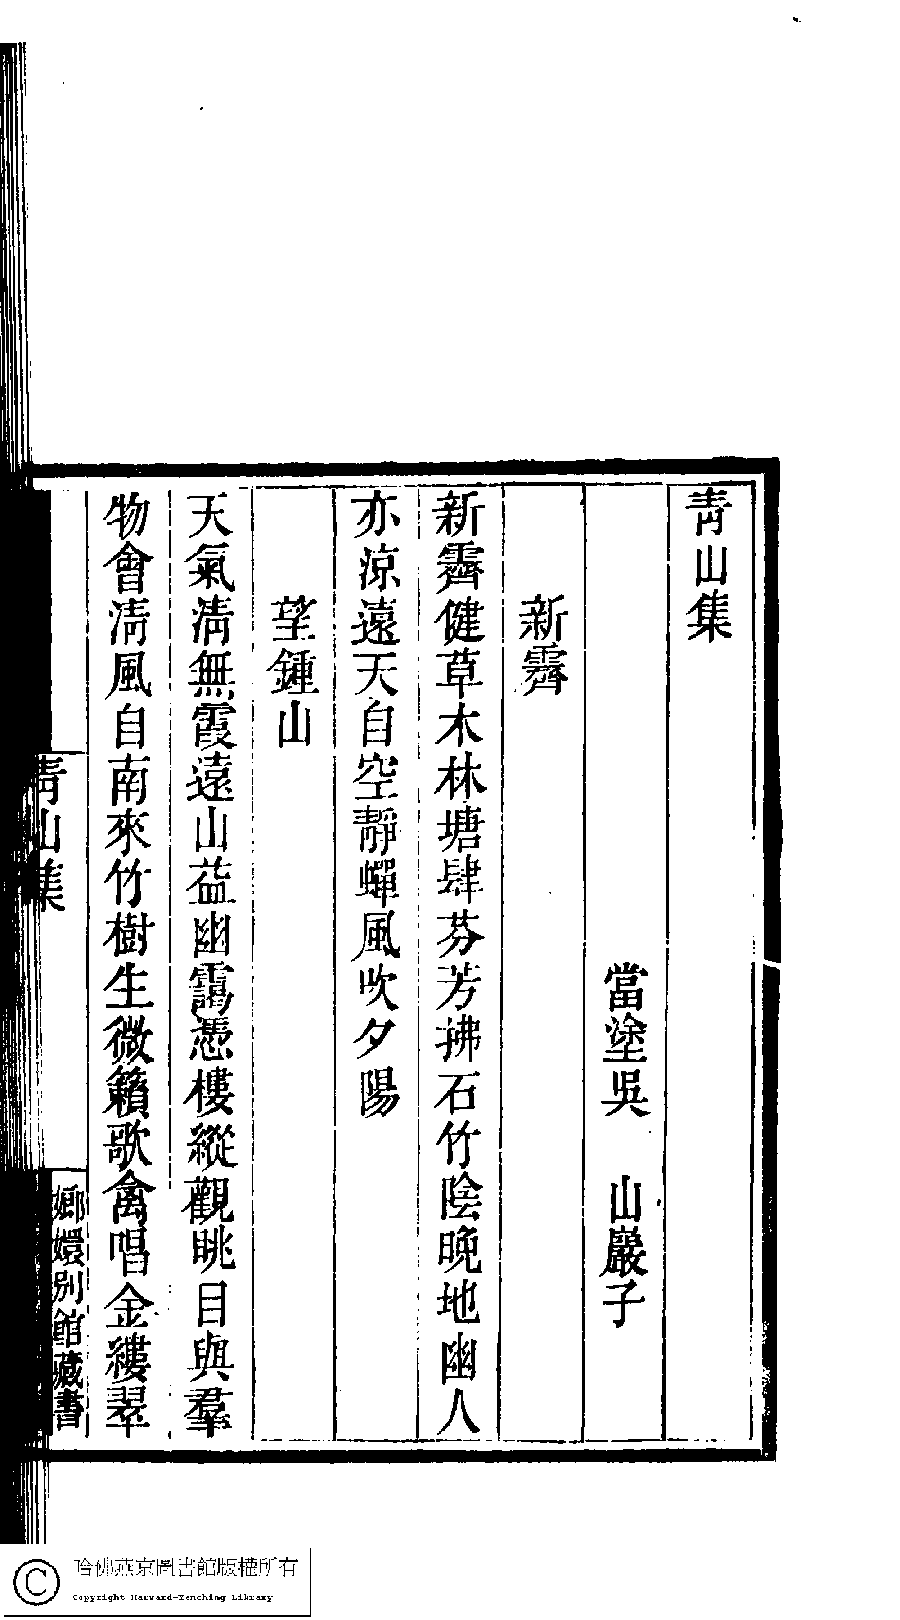 青山集
當塗吳　山巖子
新霽
新霽健草木林塘肆芬芳拂石竹陰晚地幽人
亦涼遠天自空靜蟬風吹夕陽
望鍾山
天氣清無霞遠山益幽靄憑樓縱觀眺目與羣
物會清風自南來竹樹生微籟歌禽唱金縷翠
青山集
嫏嬛別館藏書
哈佛燕京圖書館版權所有
Copyright Harvard-Yenching Library